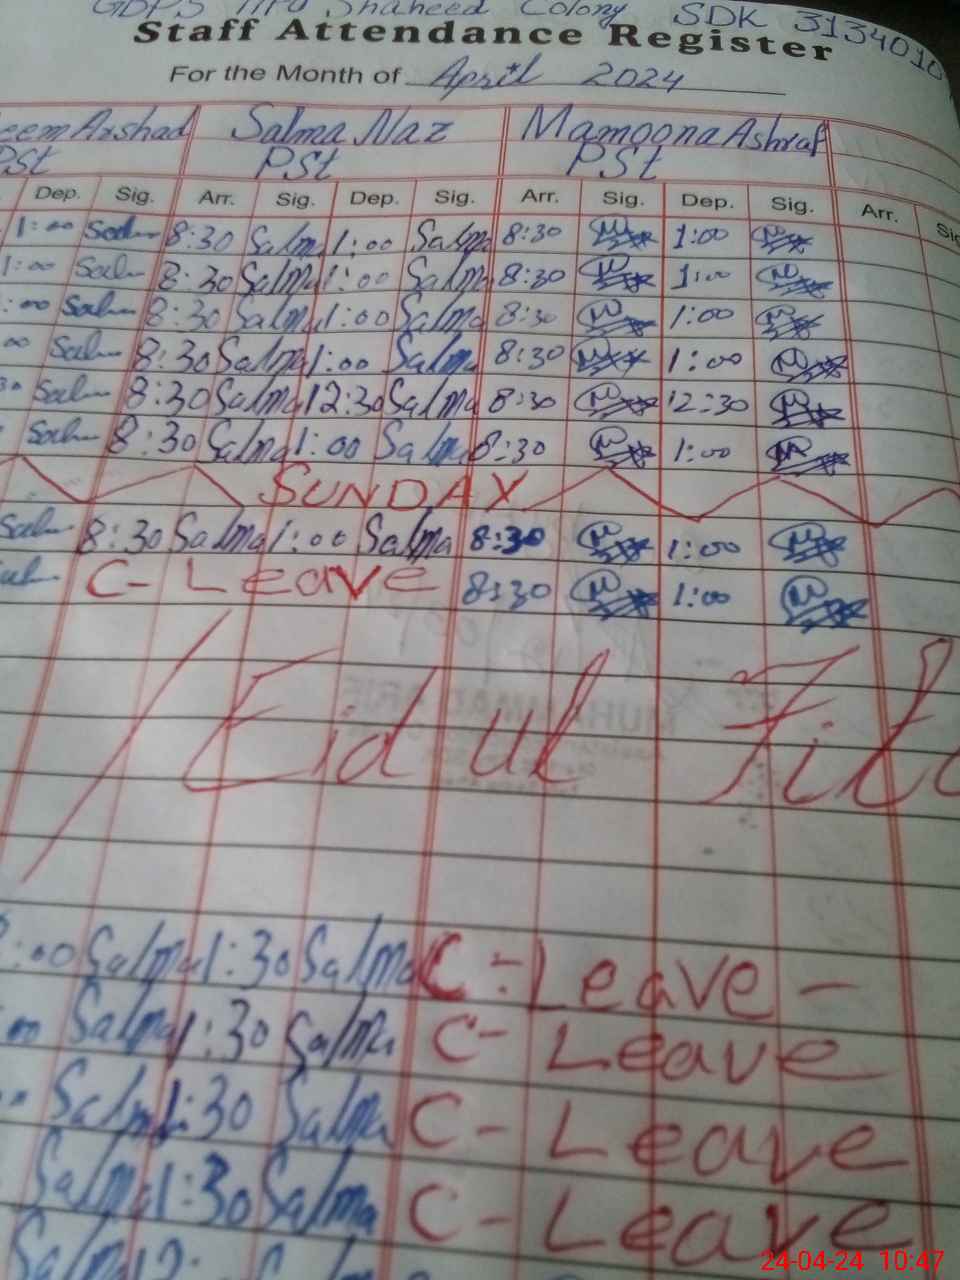 Shaheed Colony SDK 3134010
Staff Attendance Register
For the Month of April 2024
Arshad Salma Naz Mamoona Ashraf
PSt PSt PSt
Dep. Sig. Arr. Sig. Dep. Sig. Arr. Sig. Dep. Sig. Arr.
1:00 8:30 Salma 1:00 Salma 8:30 1:00
1:00 8:30 Salma 1:00 Salma 8:30 1:00
:00 8:30 Salma 1:00 Salma 8:30 1:00
00 8:30 Salma 1:00 Salma 8:30 1:00
30 8:30 Salma 12:30 Salma 8:30 12:30
8:30 Salma 1:00 Salma 8:30 1:00
SUNDAY
8:30 Salma 1:00 Salma 8:30 1:00
C- Leave 8:30 1:00
Eid ul Fit
:00 Salma 1:30 Salma C-Leave -
00 Salma 1:30 Salma C- Leave
Salma 1:30 Salma C- Leave
Salma 1:30 Salma C- Leave
Salma
24-04-24 10:47